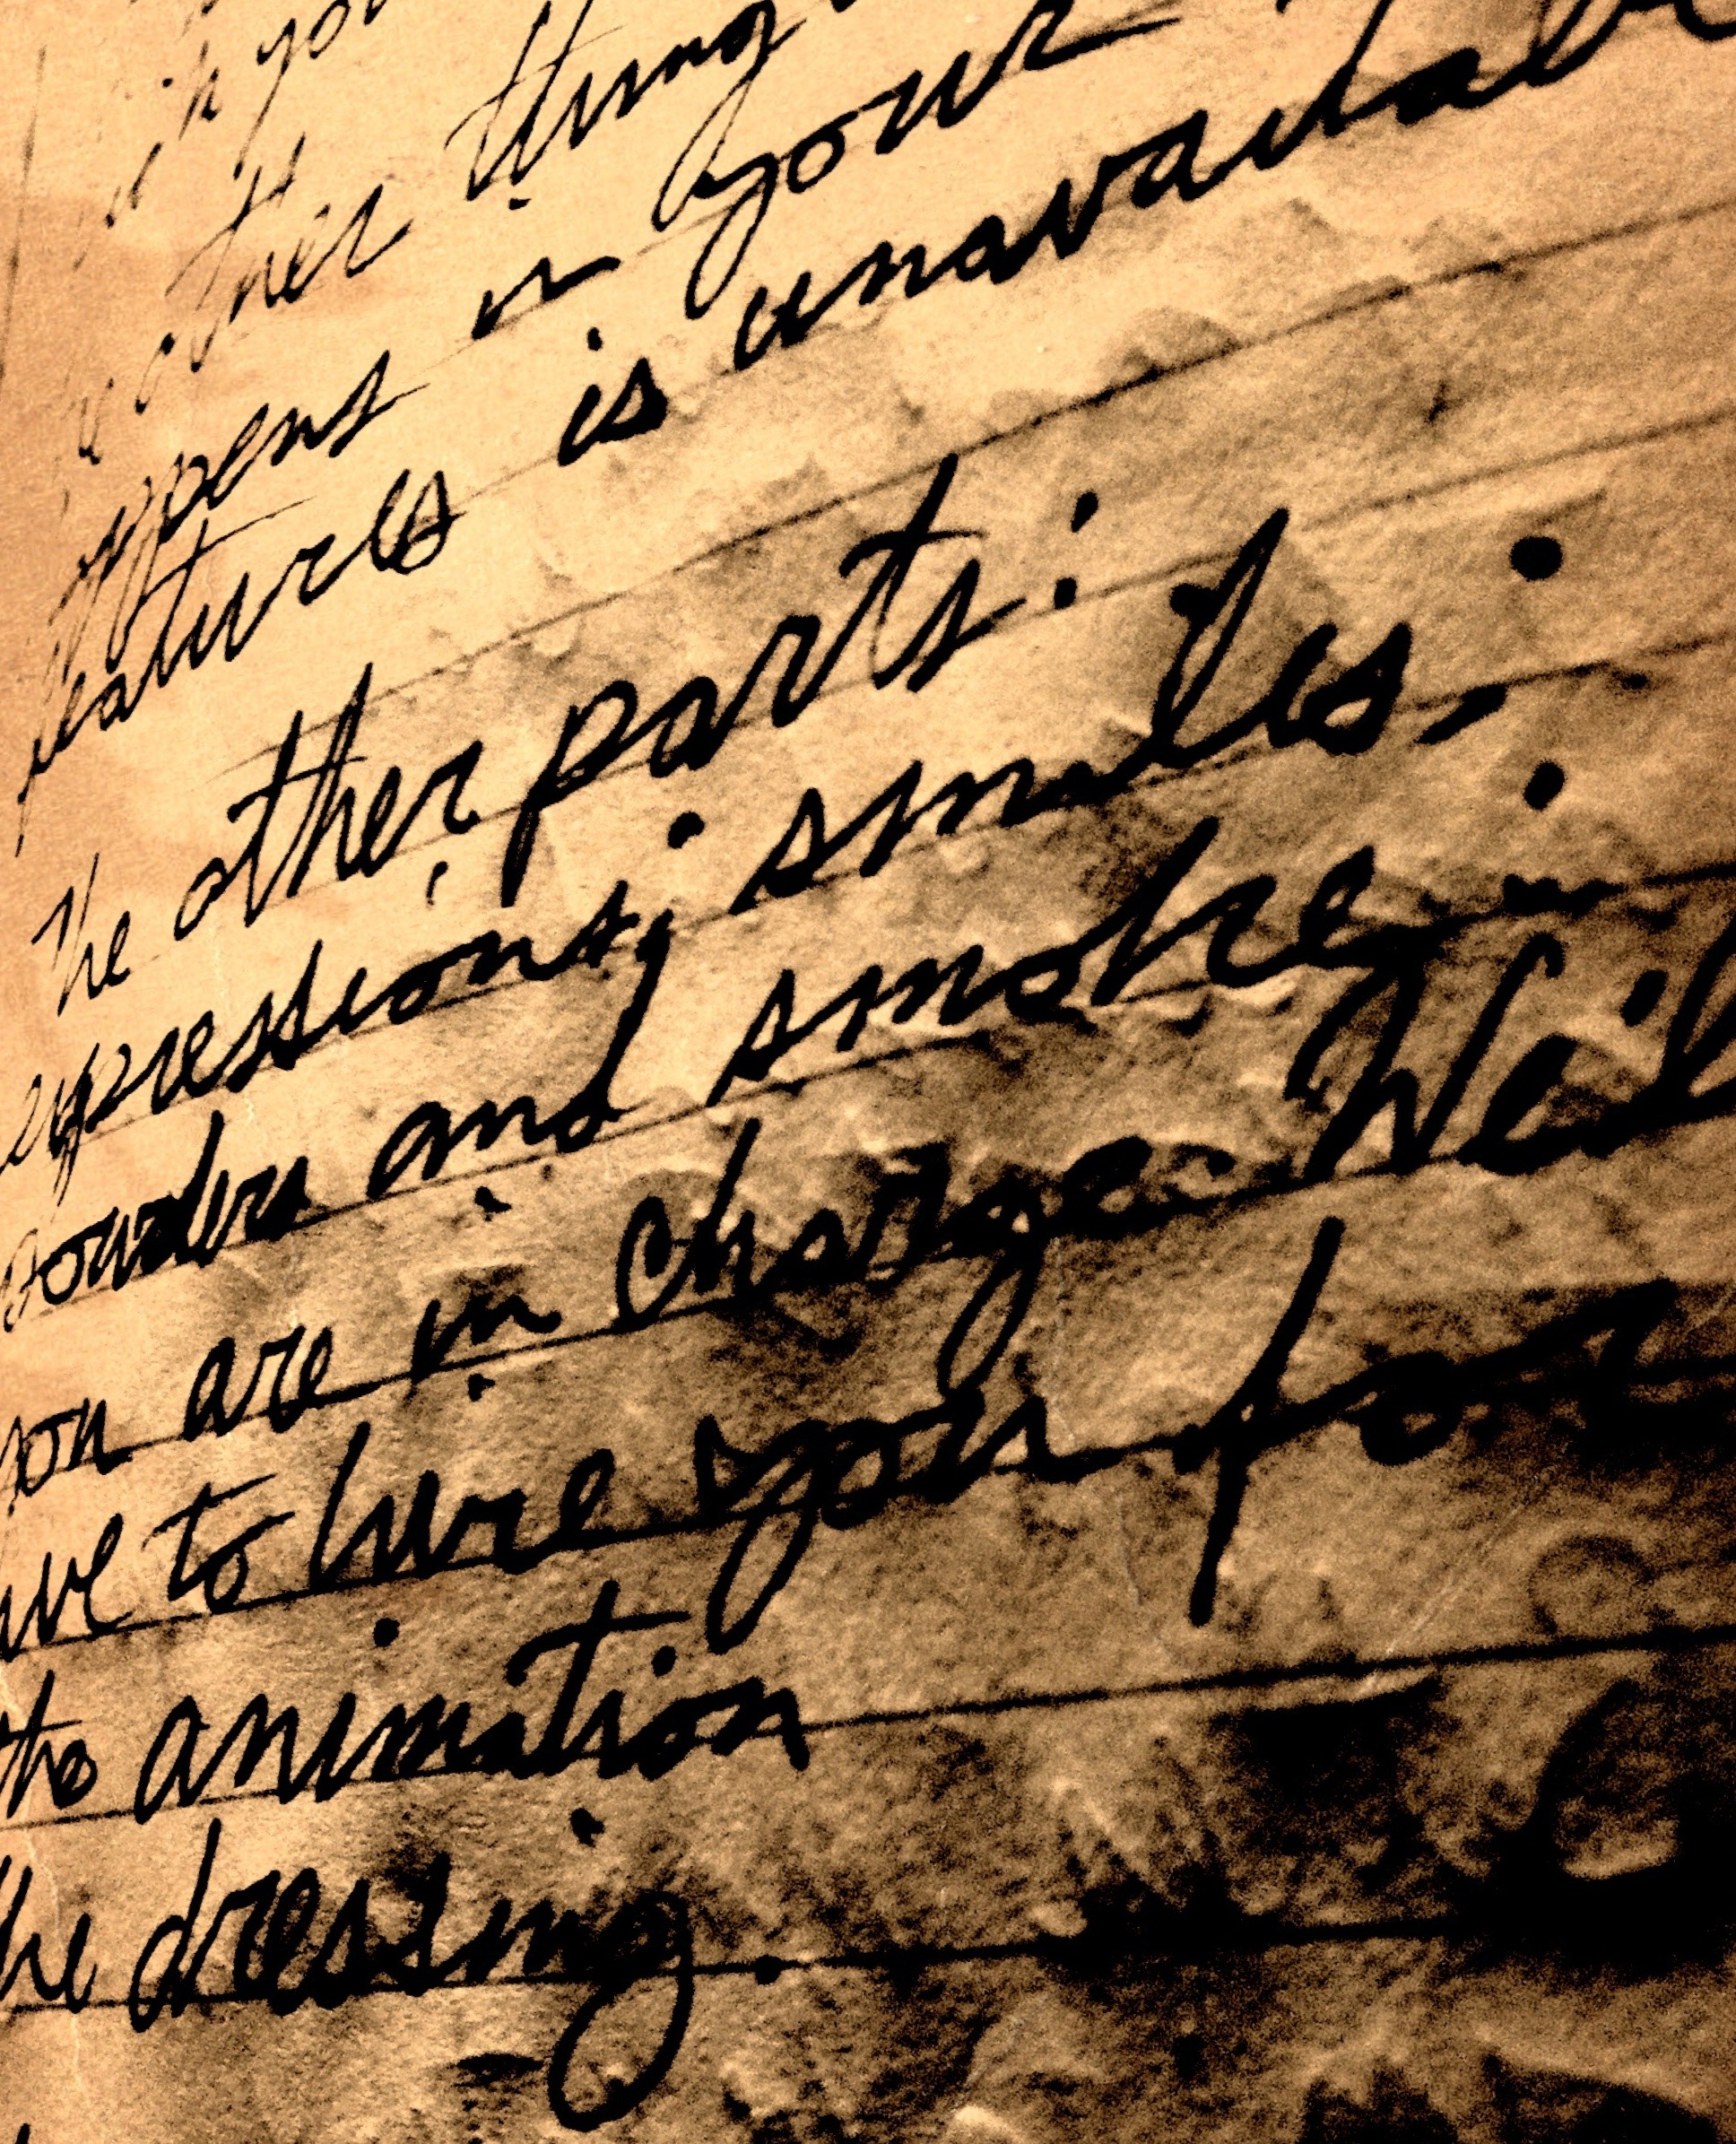 you
other thing
happens in your
features is unavailable
The other parts:
expressions, smiles,
powders and smoke.
you are in charge. We'll
have to hire you for
the animation
the dressing.